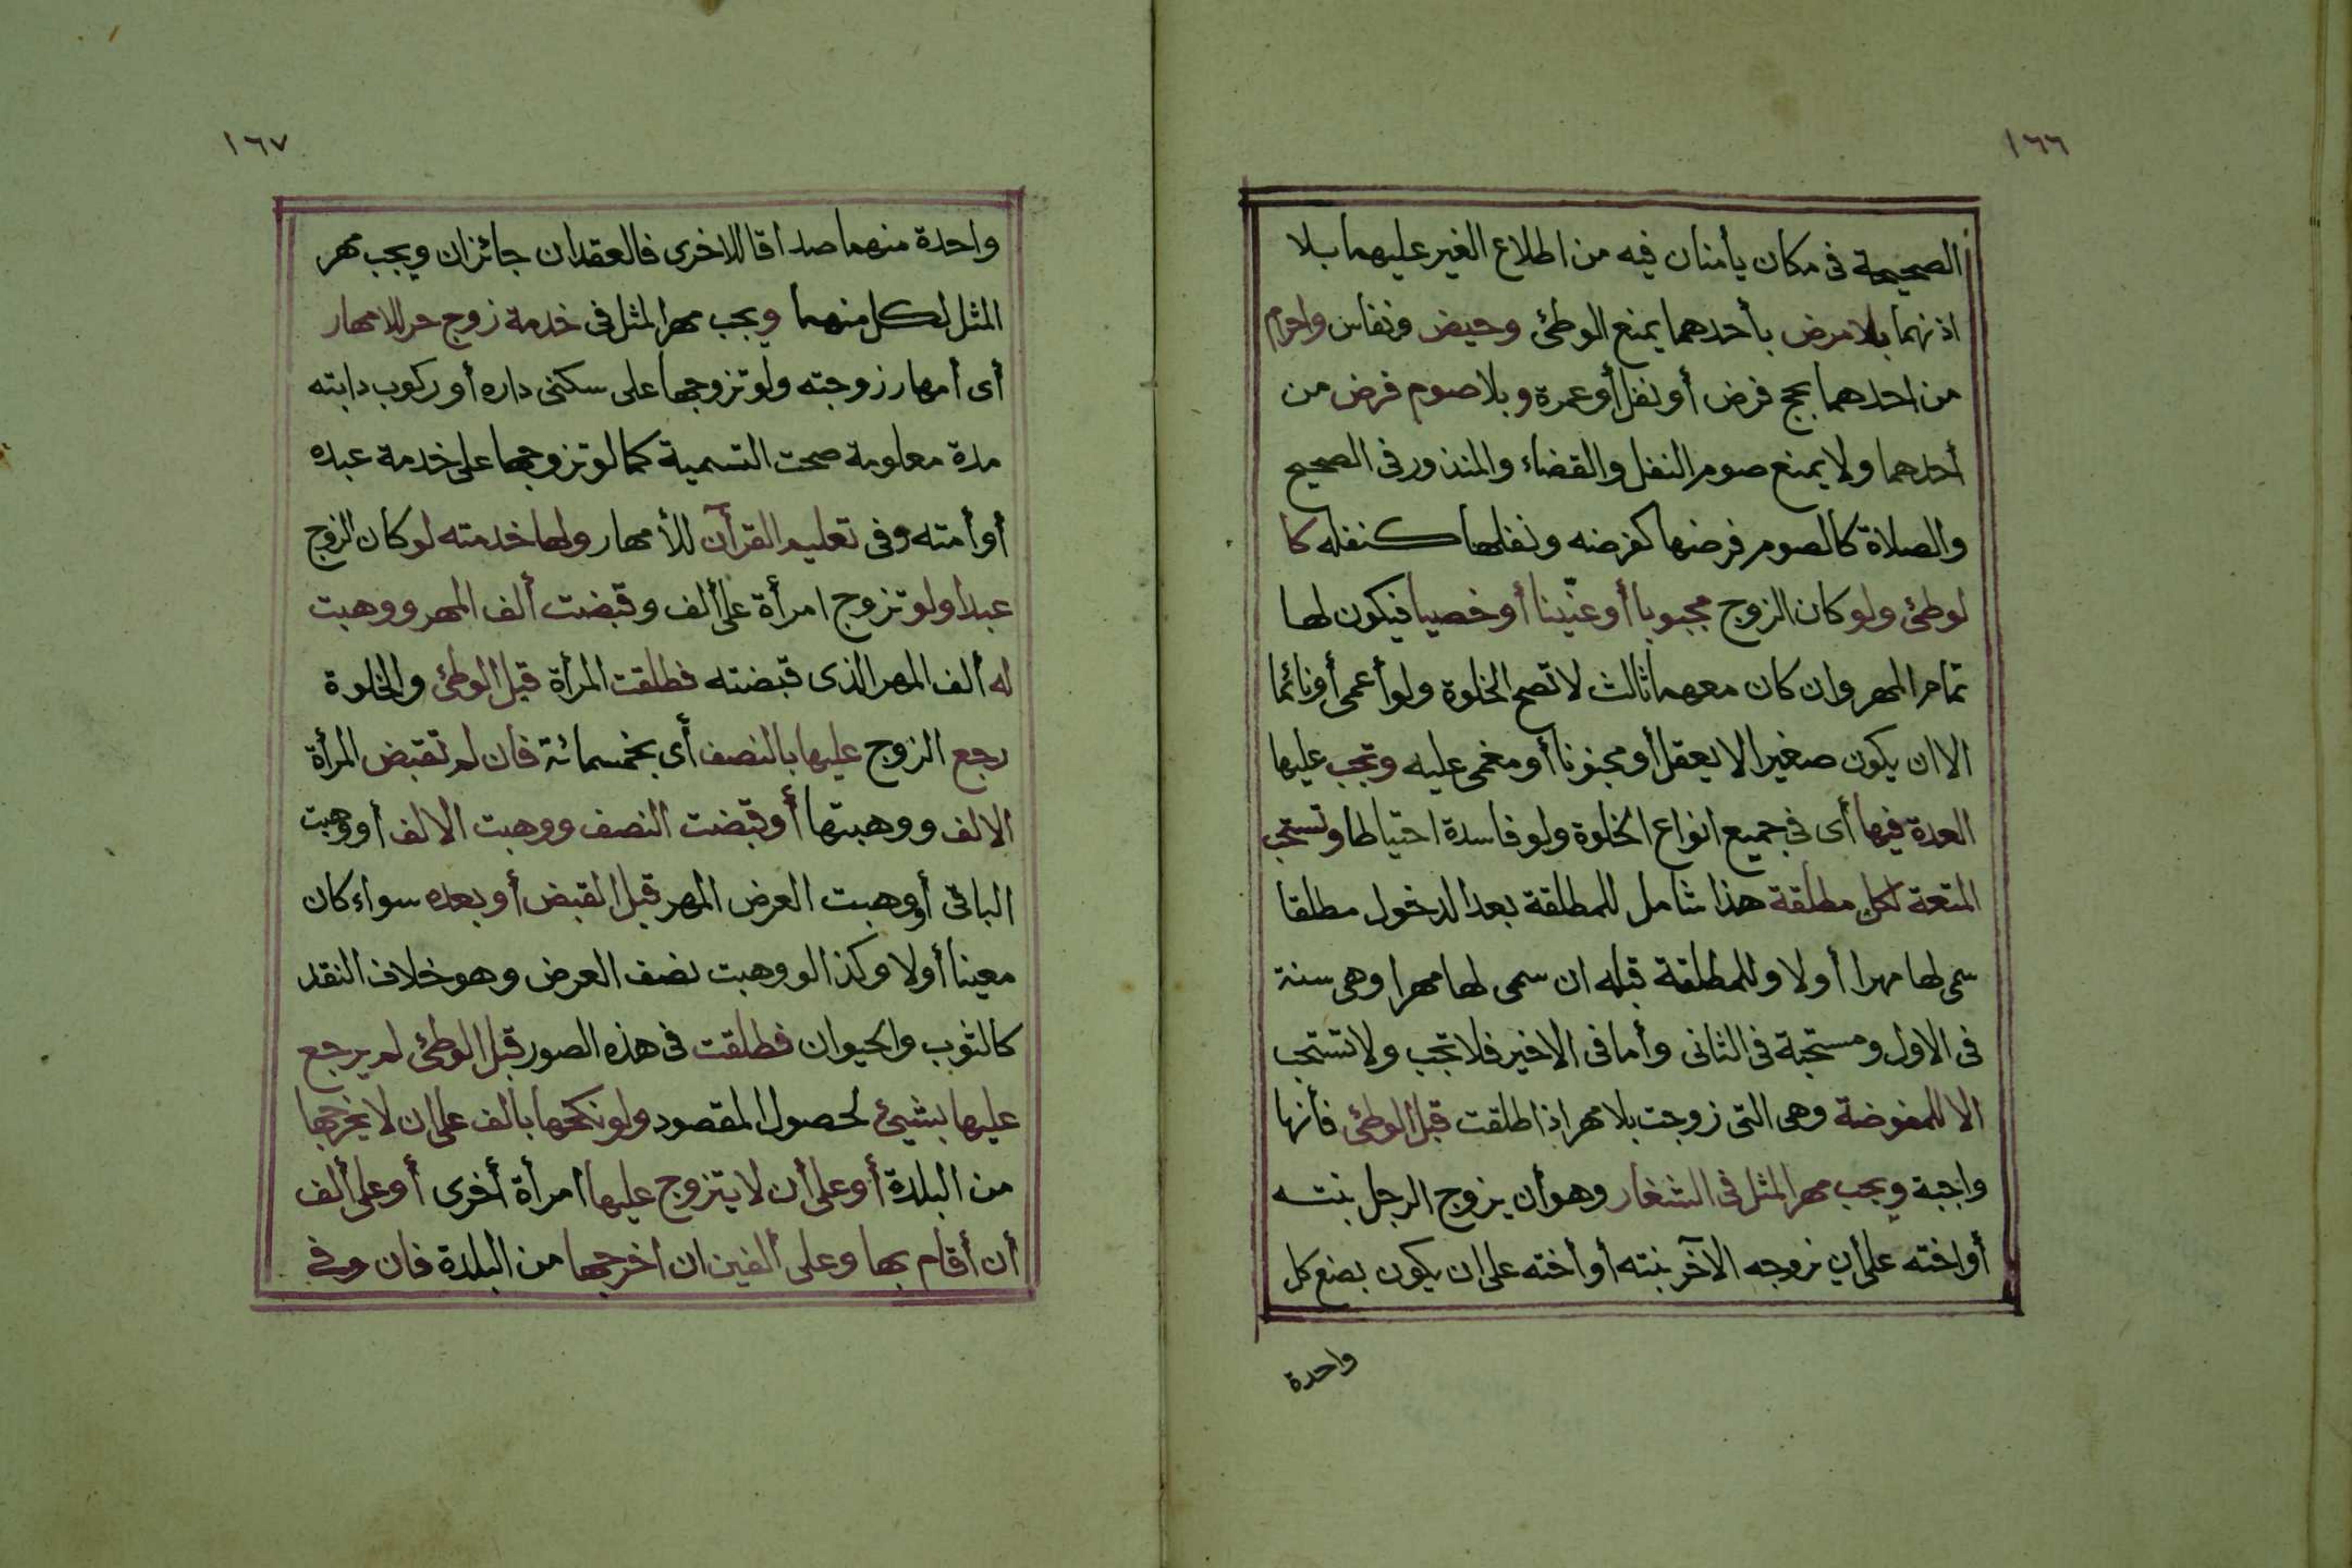 ١٦٦
الصحيحة فى مكان يأمنان فيه من اطلاع الغير عليهما بلا
اذنهما بلا مرض بأحدهما يمنع الوطئ وحيض ونفاس واحرام
من احدهما بحج فرض أو نفل أو عمرة وبلا صوم فرض من
أحدهما ولا يمنع صوم النفل والقضاء والمنذور فى الصحيح
والصلاة كالصوم فرضها كفرضه ونفلها كنفله كا
لوطئ ولو كان الزوج مجبوبا أو عنّينا أو خصيا فيكون لها
تمام المهر وان كان معهما ثالث لا تصح الخلوة ولو أعمى أو نائما
الا ان يكون صغيرا لا يعقل أو مجنونا أو مغمى عليه وتجب عليها
العدة فيها أى فى جميع انواع الخلوة ولو فاسدة احتياطا وتستحب
المتعة لكل مطلقة هذا شامل للمطلقة بعد الدخول مطلقا
سمى لها مهرا أو لا وللمطلقة قبله ان سمى لها مهرا وهى سنة
فى الاول ومستحبة فى الثانى وأما فى الاخير فلا تجب ولا تستحب
الا للمفوضة وهى التى زوجت بلا مهر اذا طلقت قبل الوطئ فأنها
واجبة ويجب مهر المثل فى الشغار وهو أن يزوج الرجل بنته
أو اخته على أن يزوجه الآخر بنته أو أخته على ان يكون بضع كل
واحدة
١٦٧
واحدة منهما صداقا للاخرى فالعقدان جائزان ويجب مهر
المثل لكل منهما ويجب مهر المثل فى خدمة زوج حر للامهار
أى أمهار زوجته ولو تزوجها على سكنى داره أو ركوب دابته
مدة معلومة صحت التسمية كما لو تزوجها على خدمة عبده
أو أمته وفى تعليم القرآن للأمهار ولها خدمته لو كان الزوج
عبدا ولو تزوج امرأة على ألف وقبضت ألف المهر ووهبت
له ألف المهر الذى قبضته فطلقت المرأة قبل الوطئ والخلوة
رجع الزوج عليها بالنصف أى بخمسمائة فان لم تقبض المرأة
الالف ووهبتها أو قبضت النصف ووهبت الالف أو وهبت
الباقى أو وهبت العرض المهر قبل القبض أو بعده سواء كان
معينا أو لا وكذا لو وهبت نصف العرض وهو خلاف النقد
كالثوب والحيوان فطلقت فى هذه الصور قبل الوطئ لم يرجع
عليها بشيئ لحصول المقصود ولو نكحها بألف على ان لا يخرجها
من البلدة أو على أن لا يتزوج عليها امرأة أخرى أو على ألف
أن أقام بها وعلى ألفين ان اخرجها من البلدة فان وفى